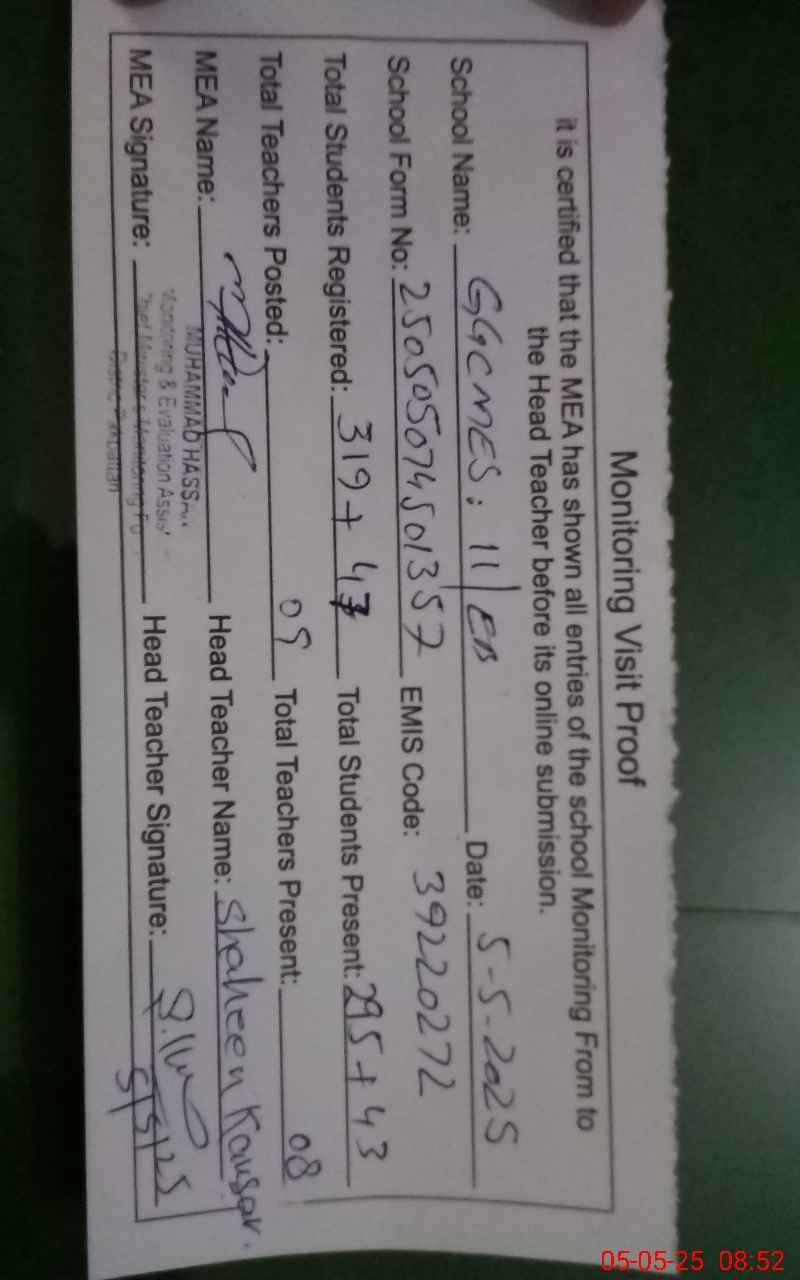 Monitoring Visit Proof
it is certified that the MEA has shown all entries of the school Monitoring From to
the Head Teacher before its online submission.
School Name: GGCMES: 11/EB Date: 5-5-2025
School Form No: 250505074501357 EMIS Code: 39220272
Total Students Registered: 319+43 Total Students Present: 295+43
Total Teachers Posted: 09 Total Teachers Present: 08
MEA Name: Head Teacher Name: Shaheen Kausar.
MUHAMMAD
Monitoring & Evaluation
MEA Signature: Head Teacher Signature:
5/5/25
District Pakpattan
05-05-25 08:52